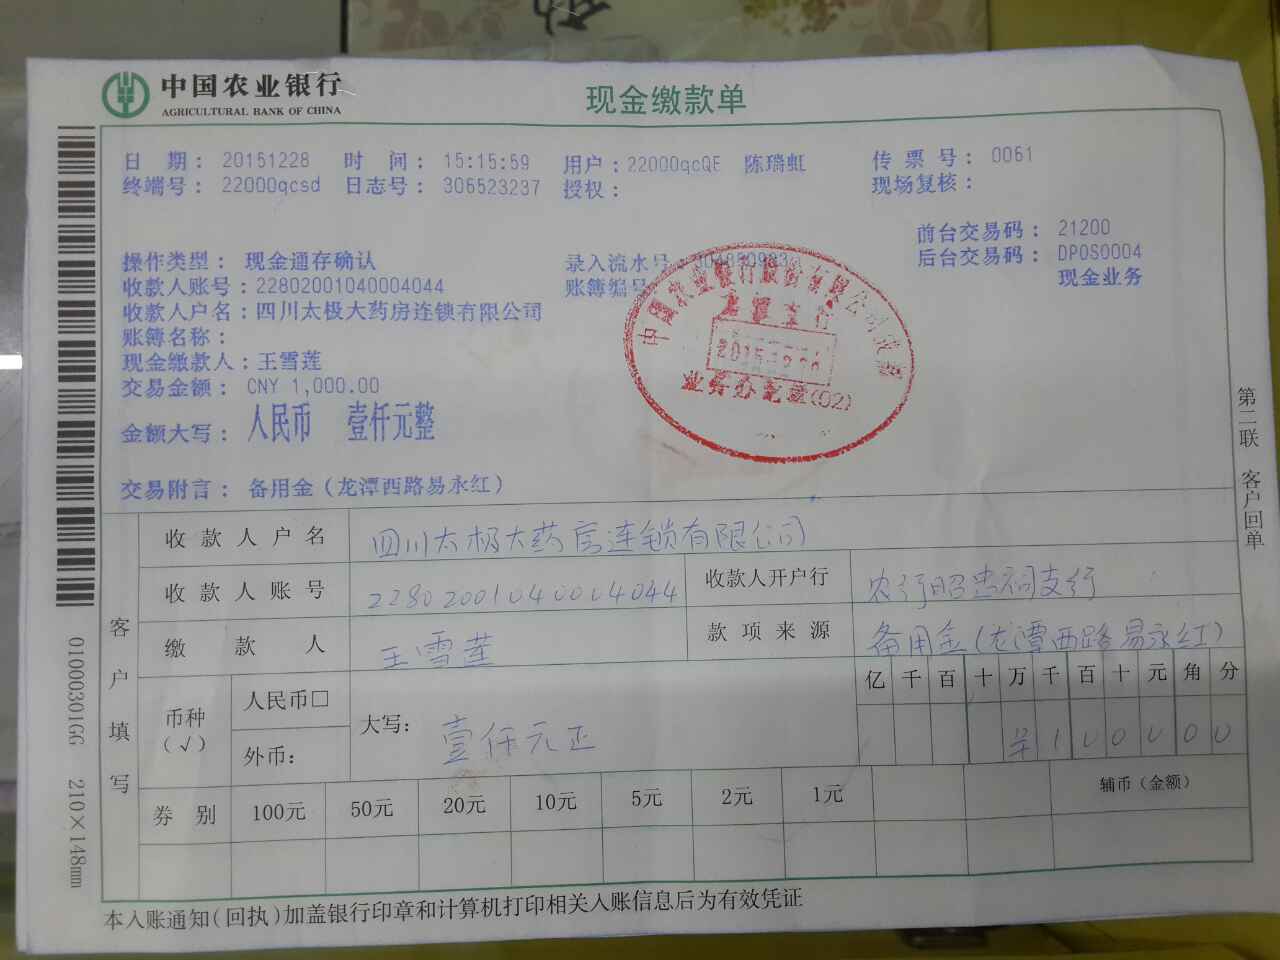 中国农业银行
AGRICULTURAL BANK OF CHINA
现金缴款单
日 期： 20151228 时 间： 15:15:59 用户：22000qcQE 陈琦虹 传 票 号： 0061
终端号： 22000qcsd 日志号： 306523237 授权： 现场复核：
前台交易码： 21200
操作类型： 现金通存确认 录入流水号： 后台交易码： DP0S0004
收款人账号：22802001040004044 账簿编号 现金业务
收款人户名：四川太极大药房连锁有限公司
账簿名称：
现金缴款人：王雪莲
交易金额： CNY 1,000.00
金额大写： 人民币 壹仟元整
交易附言： 备用金（龙潭西路易永红）
中国农业银行股份有限公司成都
支行
2015
业务办讫章(02)
第二联 客户回单
客户填写
收款人户名 四川太极大药房连锁有限公司
收款人账号 22802001040004044 收款人开户行 农行昭忠祠支行
缴款人 王雪莲 款项来源 备用金(龙潭西路易永红)
币种（√） 人民币□ 大写： 壹仟元正 亿 千 百 十 万 千 百 十 元 角 分
外币： 羊 1 0 0 0 0 0
券别 100元 50元 20元 10元 5元 2元 1元 辅币（金额）
本入账通知(回执)加盖银行印章和计算机打印相关入账信息后为有效凭证
01000301GG 210×148mm